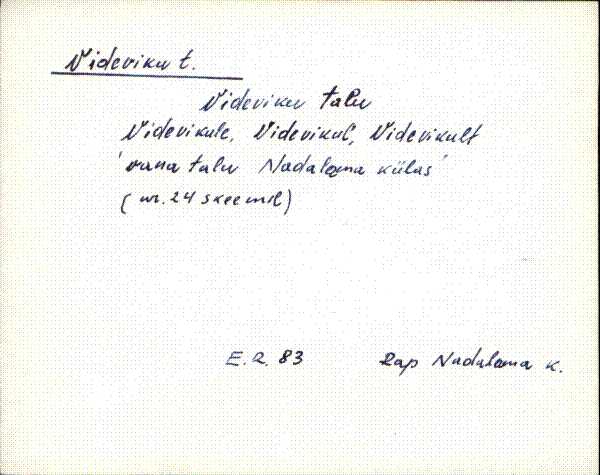 Videviku t.
Videviku talu
Videvikule, Videvikul, Videvikult
'vana talu Nadalama külas'
(nr. 24 skeemil)
E. R. 83 Rap Nadalama k.